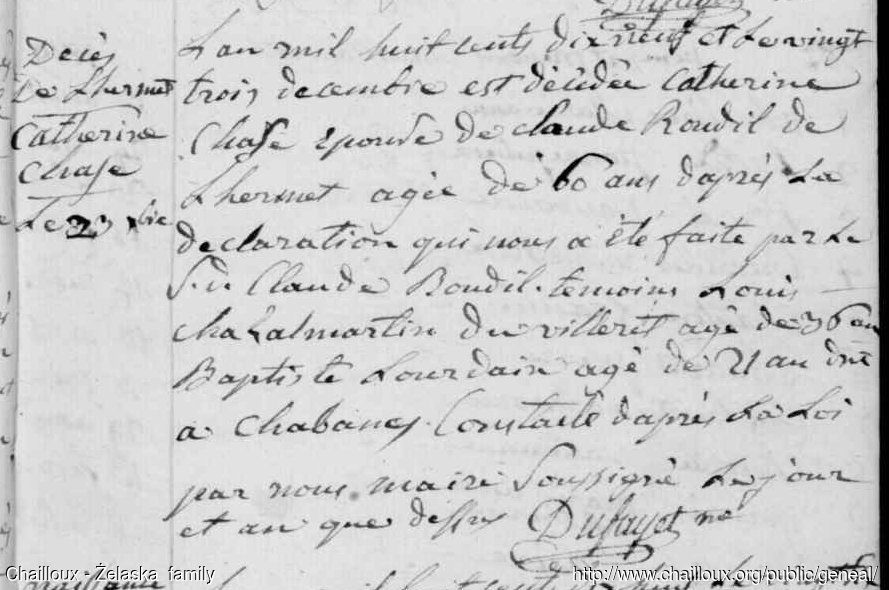 Dufayet
Décès
De Lhermet
Catherine
Chase
Le 23 xbre
L an mil huit cents dix neuf et Le vingt
trois decembre est décédée Catherine
Chase epouse de claude Roudil de
Lhermet agée de 60 ans daprés La
declaration qui nous a été faite par Le
S.r Claude Roudil. temoins Louis
chazalmartin du villeret agé de 36 an
Baptiste Lourdain agé de 21 an dmt
a Chabanes. Constaté daprés La Loi
par nous maire Soussigné Le jour
et an que dessus Dufayet me
naissance
Chailloux - Żelaska family
http://www.chailloux.org/public/geneal/